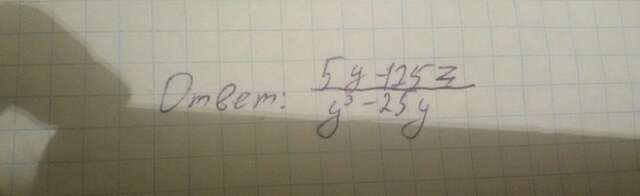 Ответ: (5y-125z)/(y³-25y)